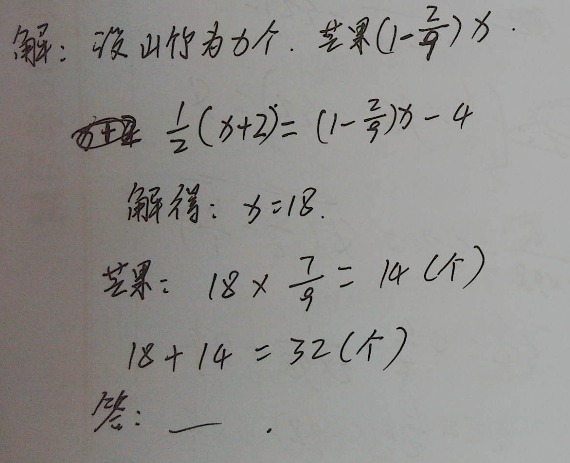 解：设山竹为x个. 芒果(1-2/9)x.
1/2(x+2)=(1-2/9)x-4
解得：x=18.
芒果：18×7/9=14(个)
18+14=32(个)
答：— .